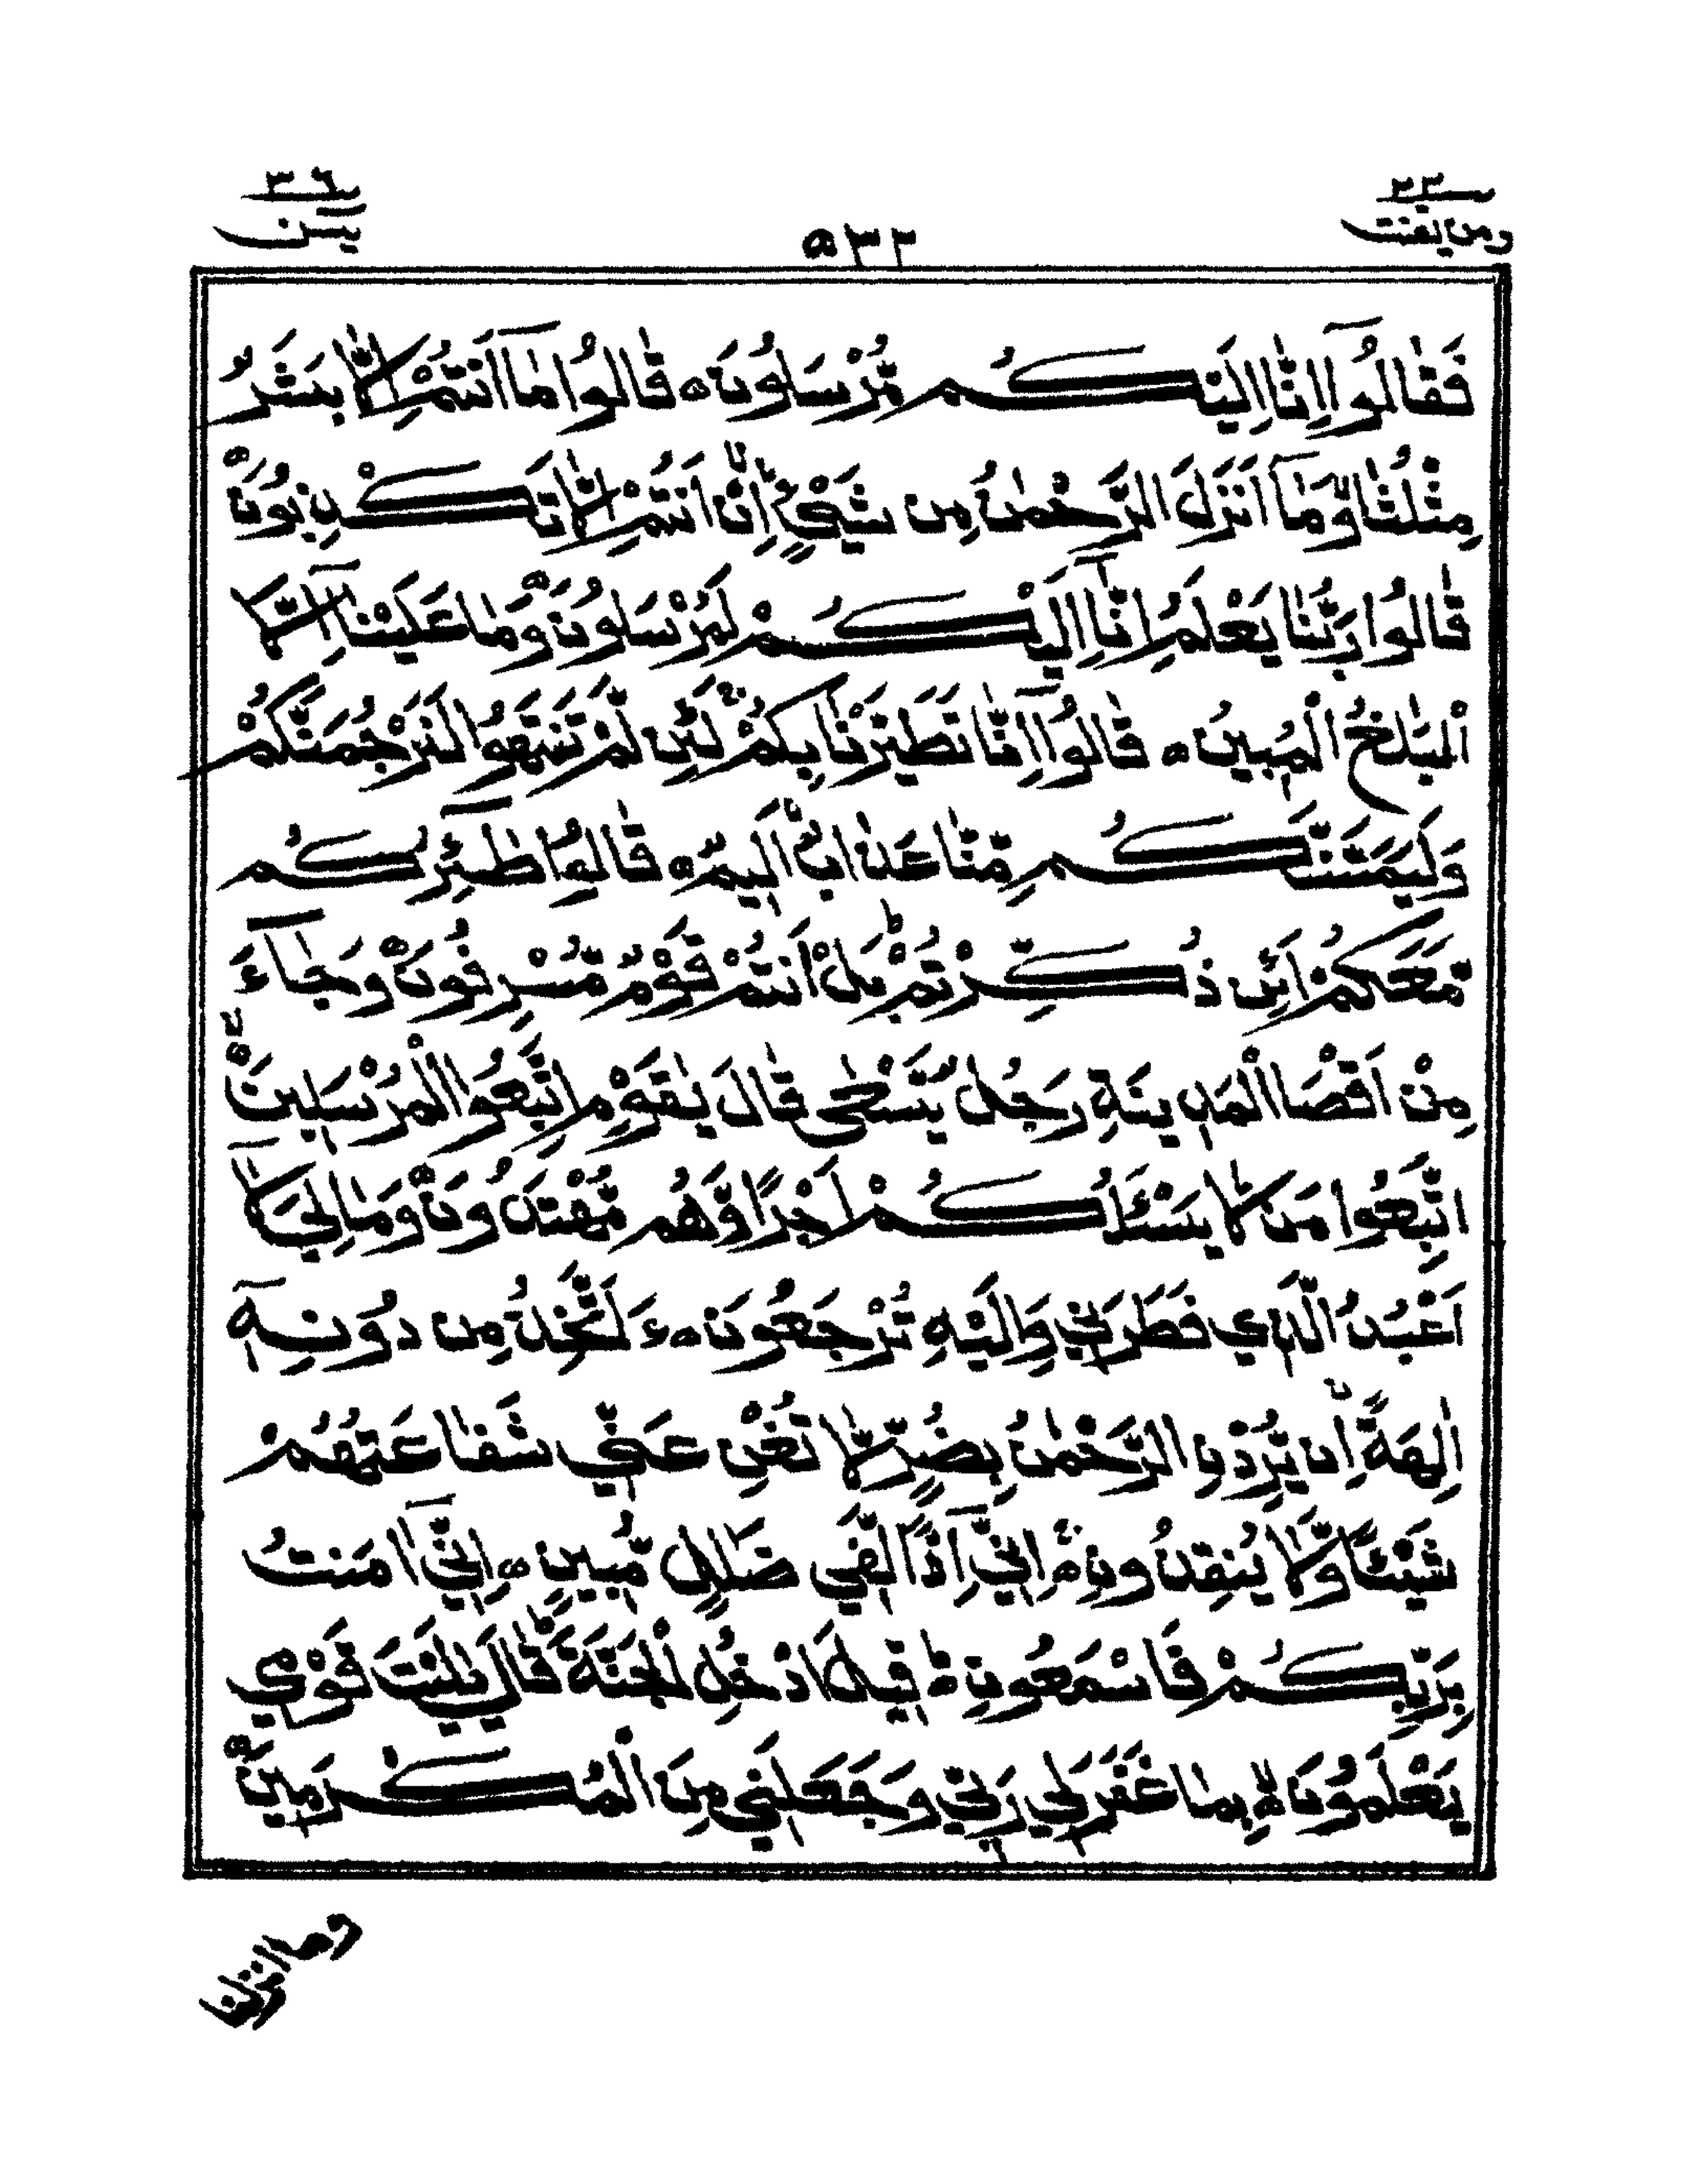 ٢٢
ومن يقنت
٥٣٢
٣٦
يٰسٓ
فَقَالُوٓا اِنَّآ اِلَيْكُم مُّرْسَلُوْنَ ه قَالُوْا مَآ اَنْتُمْ اِلَّا بَشَرٌ
مِّثْلُنَا وَمَآ اَنْزَلَ الرَّحْمٰنُ مِن شَيْءٍ اِنْ اَنْتُمْ اِلَّا تَكْذِبُوْنَ ه
قَالُوْا رَبُّنَا يَعْلَمُ اِنَّآ اِلَيْكُمْ لَمُرْسَلُوْنَ ه وَمَا عَلَيْنَآ اِلَّا
الْبَلٰغُ الْمُبِيْنُ ه قَالُوٓا اِنَّا تَطَيَّرْنَا بِكُمْ لَئِن لَّمْ تَنْتَهُوْا لَنَرْجُمَنَّكُمْ
وَلَيَمَسَّنَّكُم مِّنَّا عَذَابٌ اَلِيْمٌ ه قَالُوْا طَآئِرُكُم
مَّعَكُمْ اَئِن ذُكِّرْتُمْ بَلْ اَنْتُمْ قَوْمٌ مُّسْرِفُوْنَ ه وَجَآءَ
مِنْ اَقْصَا الْمَدِيْنَةِ رَجُلٌ يَّسْعٰى قَالَ يٰقَوْمِ اتَّبِعُوا الْمُرْسَلِيْنَ ه
اتَّبِعُوْا مَن لَّا يَسْئَلُكُمْ اَجْرًا وَّهُم مُّهْتَدُوْنَ ه وَمَا لِيَ لَآ
اَعْبُدُ الَّذِيْ فَطَرَنِيْ وَاِلَيْهِ تُرْجَعُوْنَ ه ءَاَتَّخِذُ مِن دُوْنِهٖٓ
اٰلِهَةً اِن يُّرِدْنِ الرَّحْمٰنُ بِضُرٍّ لَّا تُغْنِ عَنِّيْ شَفَاعَتُهُمْ
شَيْئًا وَّلَا يُنْقِذُوْنِ ه اِنِّيٓ اِذًا لَّفِيْ ضَلٰلٍ مُّبِيْنٍ ه اِنِّيٓ اٰمَنْتُ
بِرَبِّكُمْ فَاسْمَعُوْنِ ه قِيْلَ ادْخُلِ الْجَنَّةَ قَالَ يٰلَيْتَ قَوْمِيْ
يَعْلَمُوْنَ ه بِمَا غَفَرَ لِيْ رَبِّيْ وَجَعَلَنِيْ مِنَ الْمُكْرَمِيْنَ ه
وما انزلنا